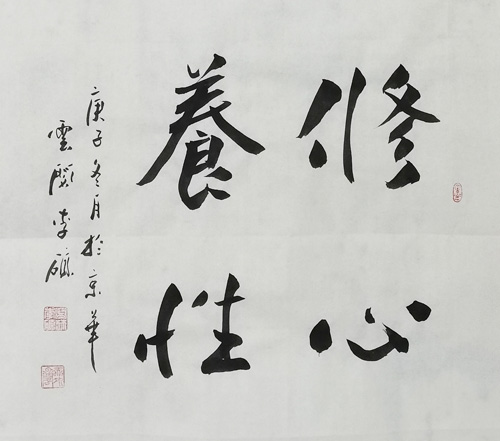 修心
養性
庚子冬月於京華
雲閣李碩